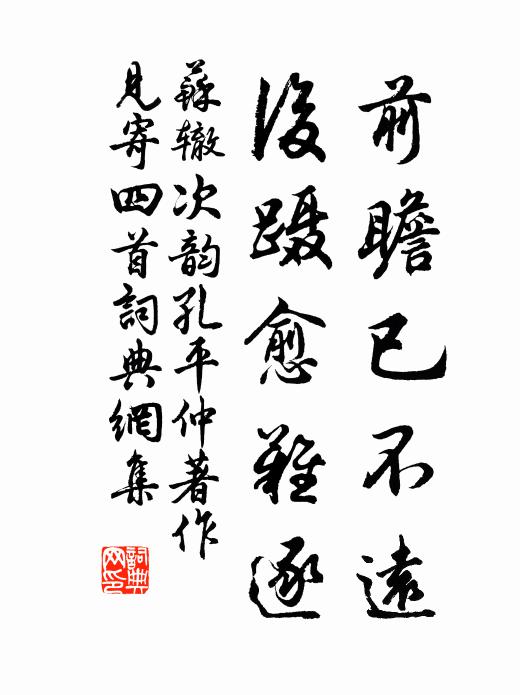 前瞻已不遠
後蹑愈難逐
蘇辙次韵孔平仲著作
見寄四首詞典網集
詞典
网印